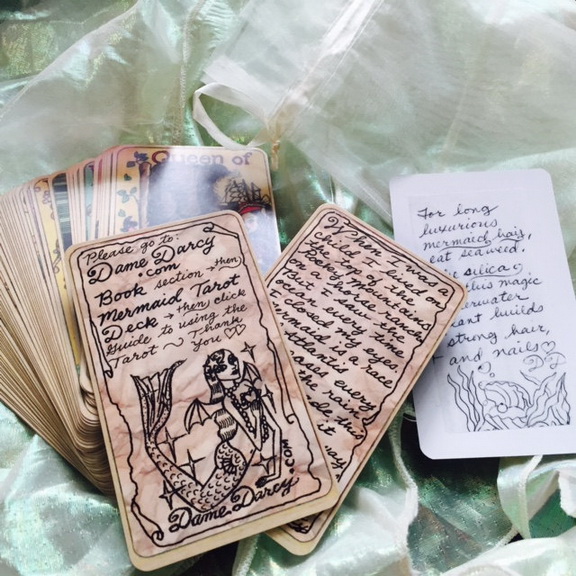 Queen of
Please go to:
Dame Darcy
.com
Book section → then
Mermaid Tarot
Deck → then click
Guide to using the
Tarot ~ Thank
You ♡♡
Dame Darcy.com
When I was a
child I lived on
the top of the
Rocky Mountains
on a horse ranch
But
time
closed my eyes
mermaid is a race
Atlantis
every
the
this
For long
luxurious
mermaid hair,
eat seaweed.
silica
this magic
underwater
plant builds
strong hair,
and nails ♡
DD